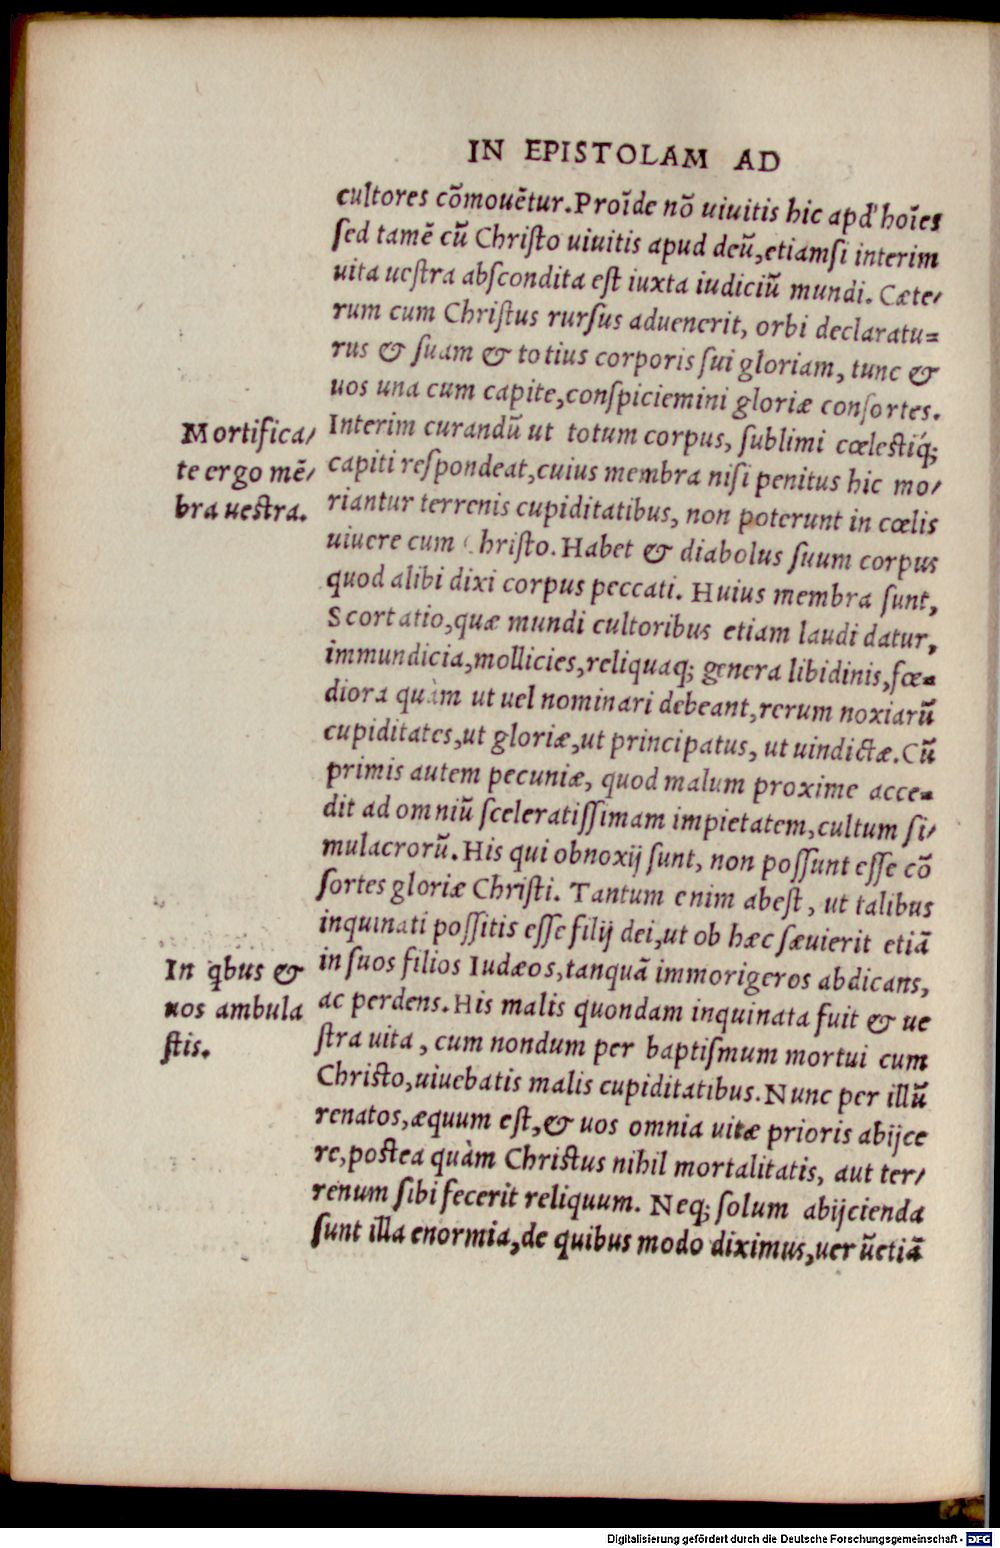 IN EPISTOLAM AD
cultores cõmouẽtur. Proĩde nõ uiuitis hic apd' hoĩes
ſed tamẽ cũ Chriſto uiuitis apud deũ, etiamſi interim
uita ueſtra abſcondita eſt iuxta iudiciũ mundi. Cæte/
rum cum Chriſtus rurſus aduenerit, orbi declaratu=
rus & ſuam & totius corporis ſui gloriam, tunc &
uos una cum capite, conſpiciemini gloriæ conſortes.
Mortifica/
te ergo mẽ/
bra ueſtra.
Interim curandũ ut totum corpus, ſublimi cœleſtiq́;
capiti reſpondeat, cuius membra niſi penitus hic mo/
riantur terrenis cupiditatibus, non poterunt in cœlis
uiuere cum Chriſto. Habet & diabolus ſuum corpus
quod alibi dixi corpus peccati. Huius membra ſunt,
Scortatio, quæ mundi cultoribus etiam laudi datur,
immundicia, mollicies, reliquaq; genera libidinis, fœ=
diora quàm ut uel nominari debeant, rerum noxiarũ
cupiditates, ut gloriæ, ut principatus, ut uindictæ. Cũ
primis autem pecuniæ, quod malum proxime acce=
dit ad omniũ ſceleratiſſimam impietatem, cultum ſi/
mulacrorũ. His qui obnoxij ſunt, non poſſunt eſſe cõ
ſortes gloriæ Chriſti. Tantum enim abeſt, ut talibus
inquinati poſſitis eſſe filij dei, ut ob hæc ſæuierit etiã
In q̃bus &
uos ambula
ſtis.
in ſuos filios Iudæos, tanquã immorigeros abdicans,
ac perdens. His malis quondam inquinata fuit & ue
ſtra uita, cum nondum per baptiſmum mortui cum
Chriſto, uiuebatis malis cupiditatibus. Nunc per illũ
renatos, æquum eſt, & uos omnia uitæ prioris abijce
re, poſtea quàm Chriſtus nihil mortalitatis, aut ter/
renum ſibi fecerit reliquum. Neq; ſolum abijcienda
ſunt illa enormia, de quibus modo diximus, uer ũetiã
Digitalisierung gefördert durch die Deutsche Forschungsgemeinschaft - DFG